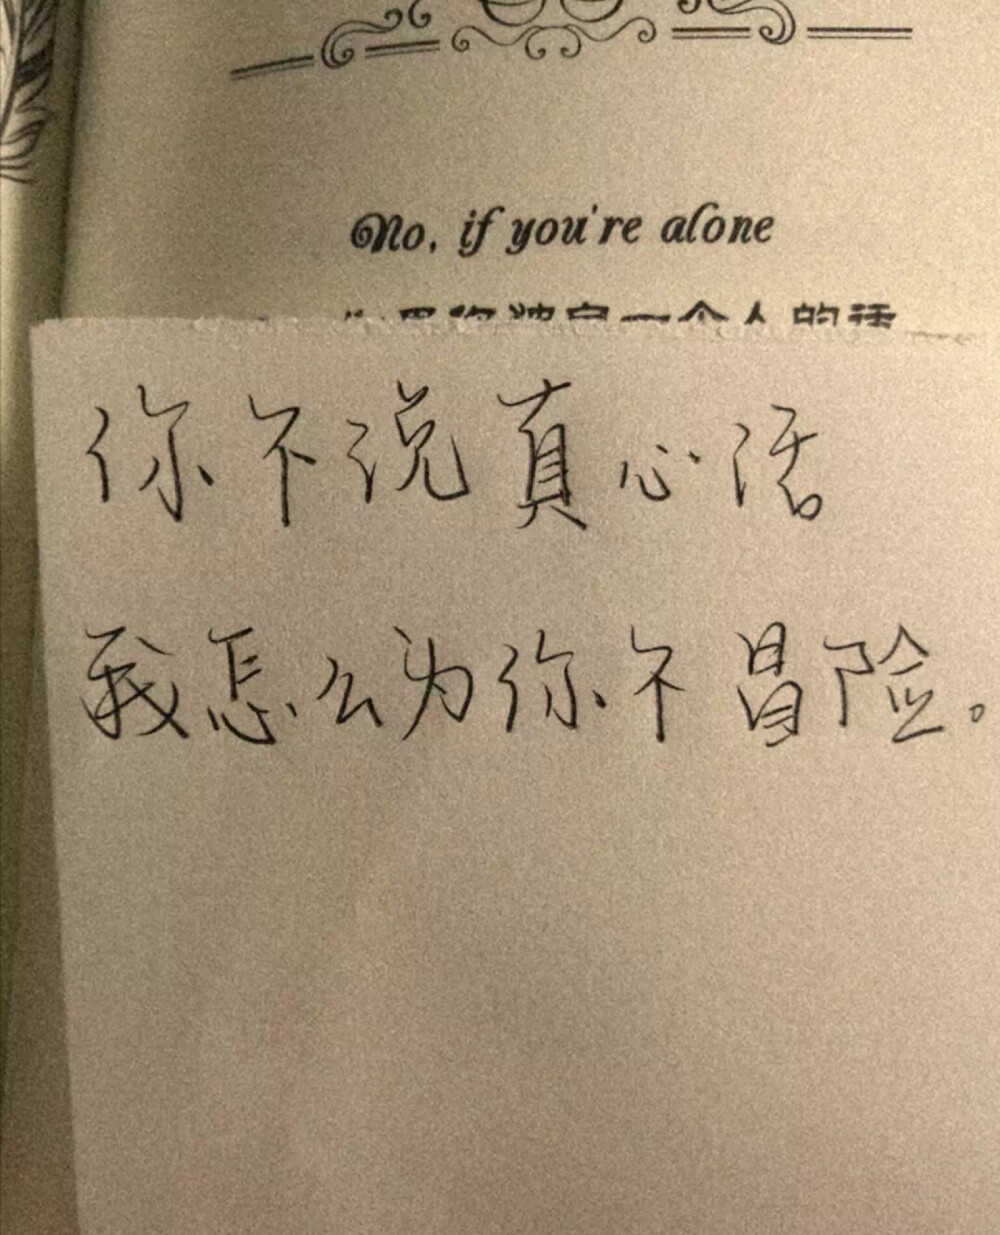 No, if you're alone
一个人的
你不说真心话
我怎么为你不冒险。